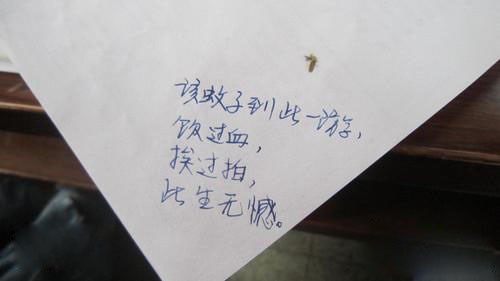 该蚊子到此一游，
饮过血，
挨过拍，
此生无憾。